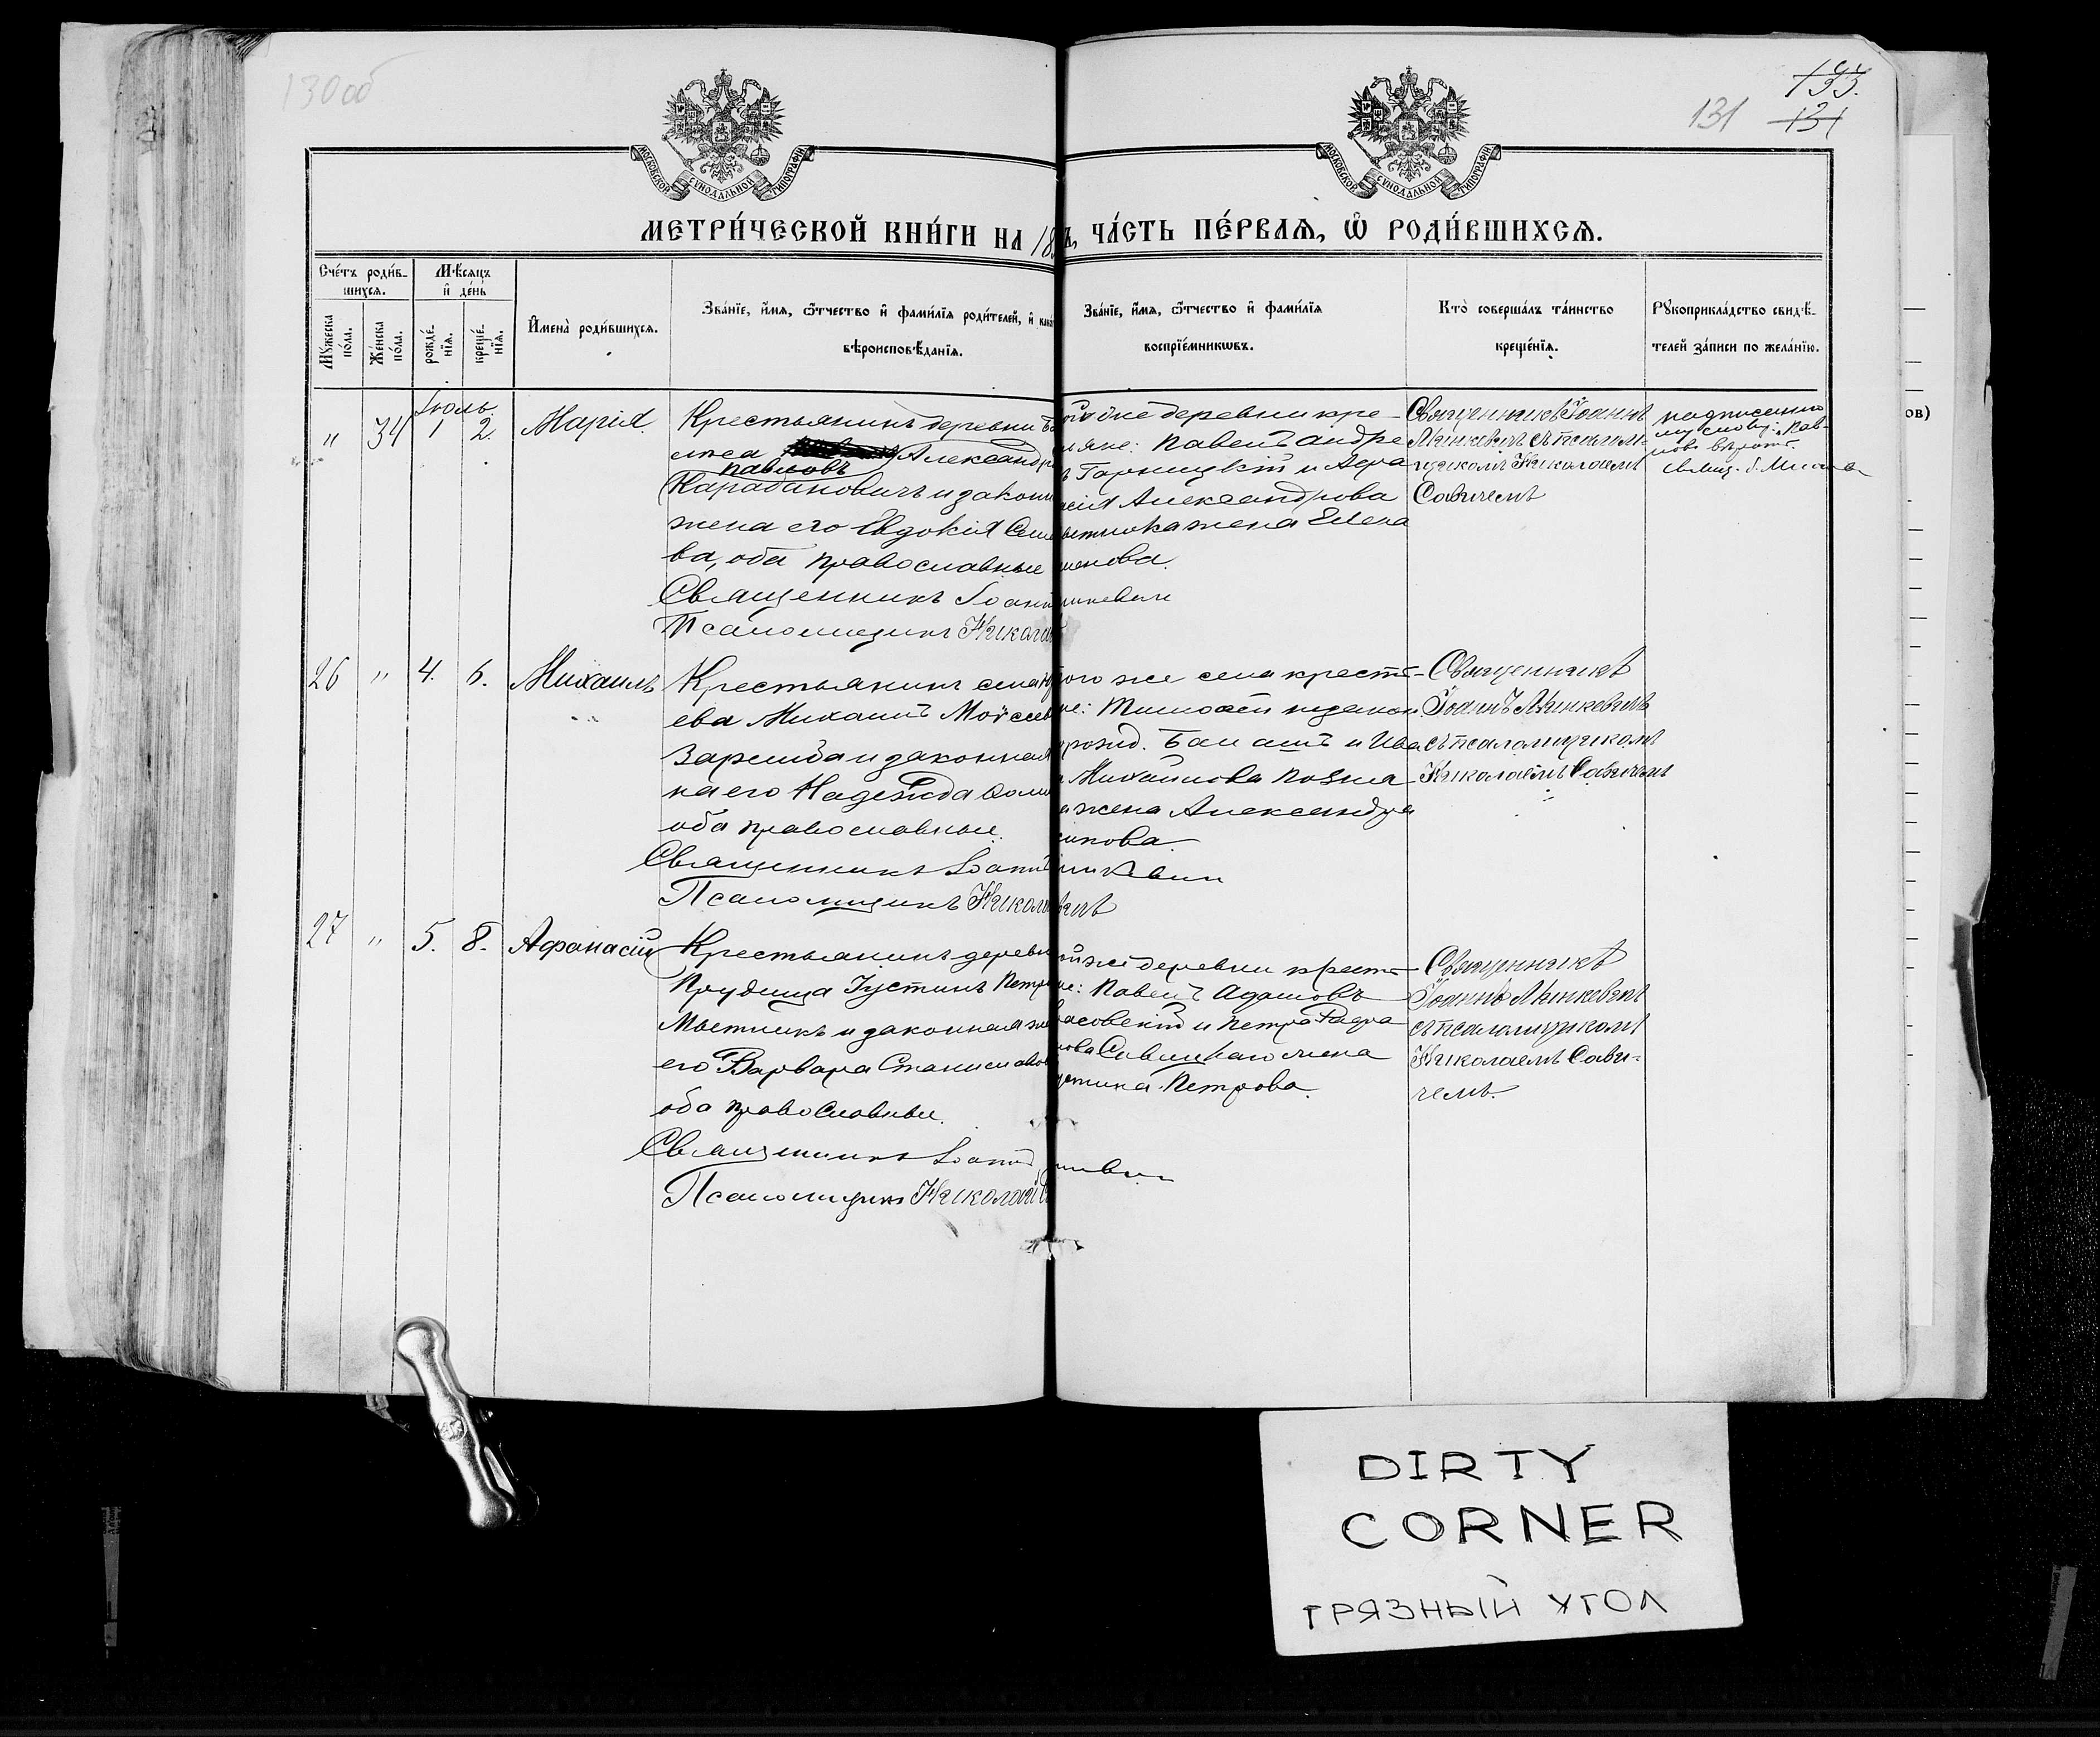 130об
131
133.
131
МОСКОВСКОЙ СѴНОДАЛЬНОЙ ТИПОГРАФІИ
МОСКОВСКОЙ СѴНОДАЛЬНОЙ ТИПОГРАФІИ
МЕТРИ́ЧЕСКОЙ КНИ́ГИ НА 18
Ъ, ЧА́СТЬ ПЕ́РВАѦ, Ѿ РОДИ́ВШИХСѦ.
Сче́тъ роди́в-
шихсѧ.
Мѣ́сѧцъ
и҆ де́нь
Мꙋ́жеска
по́ла.
Же́нска
по́ла.
рожде́-
нїѧ.
креще́-
нїѧ.
И҆мена̀ роди́вшихсѧ.
Зва́нїе, и҆́мѧ, ѻ҆́тчество и҆ фами́лїѧ роди́телей, и҆ како
вѣроисповѣ́данїѧ.
Зва́нїе, и҆́мѧ, ѻ҆́тчество и҆ фами́лїѧ
воспрїе́мникѡвъ.
Кто̀ соверша́лъ та́инство
креще́нїѧ.
Рꙋкоприкла́дство свидѣ́-
телей за́писи по жела́нїю.
ов)
Іюль.
" 34 1 2. Марія.
Крестьянинъ деревни
Александр
Павловъ
Карабановичъ и законн
жена его Евдокія Сем
ва, оба православные
Священникъ Іоанн
Псаломщикъ Никола
той же деревни кре-
яне: Павелъ Андре
Гарницкій и Афа
сія Александрова
жена Елена
менова.
инкевич
Священникъ Іоаннъ
Минкевичъ съ псалом-
щикомъ Николаемъ
Савичемъ
надписанно
му слову: Пав-
ловъ вѣрить
26 " 4. 6. Михаилъ
Крестьянинъ села
ева Михаилъ Моѵсеев
Заремба и законная
на его Надежда
оба православные.
Священникъ Іоаннъ
Псаломщикъ Никола
ого же села крестъ-
не: Тимоѳей
и Ива
Михайлова
жена Александра
инкевич
вичъ
Священникъ
Іоаннъ Минкевичъ
съ псаломщикомъ
Николаемъ Савичемъ
27 " 5. 8. Афанасій
Крестьянинъ деревни
Прудища Іустинъ Петро
Мытникъ и законная же
его Варвара Станиславов
оба православные.
Священникъ Іоаннъ
Псаломщикъ Николай С
ой же деревни крест-
не: Павелъ Адамовъ
асовскій и Петра
нова Савицкаго жена
устина Петрова.
Священникъ
Іоаннъ Минкевичъ
съ псаломщикомъ
Николаемъ Сави-
чемъ.
DIRTY
CORNER
ГРЯЗНЫЙ УГОЛ